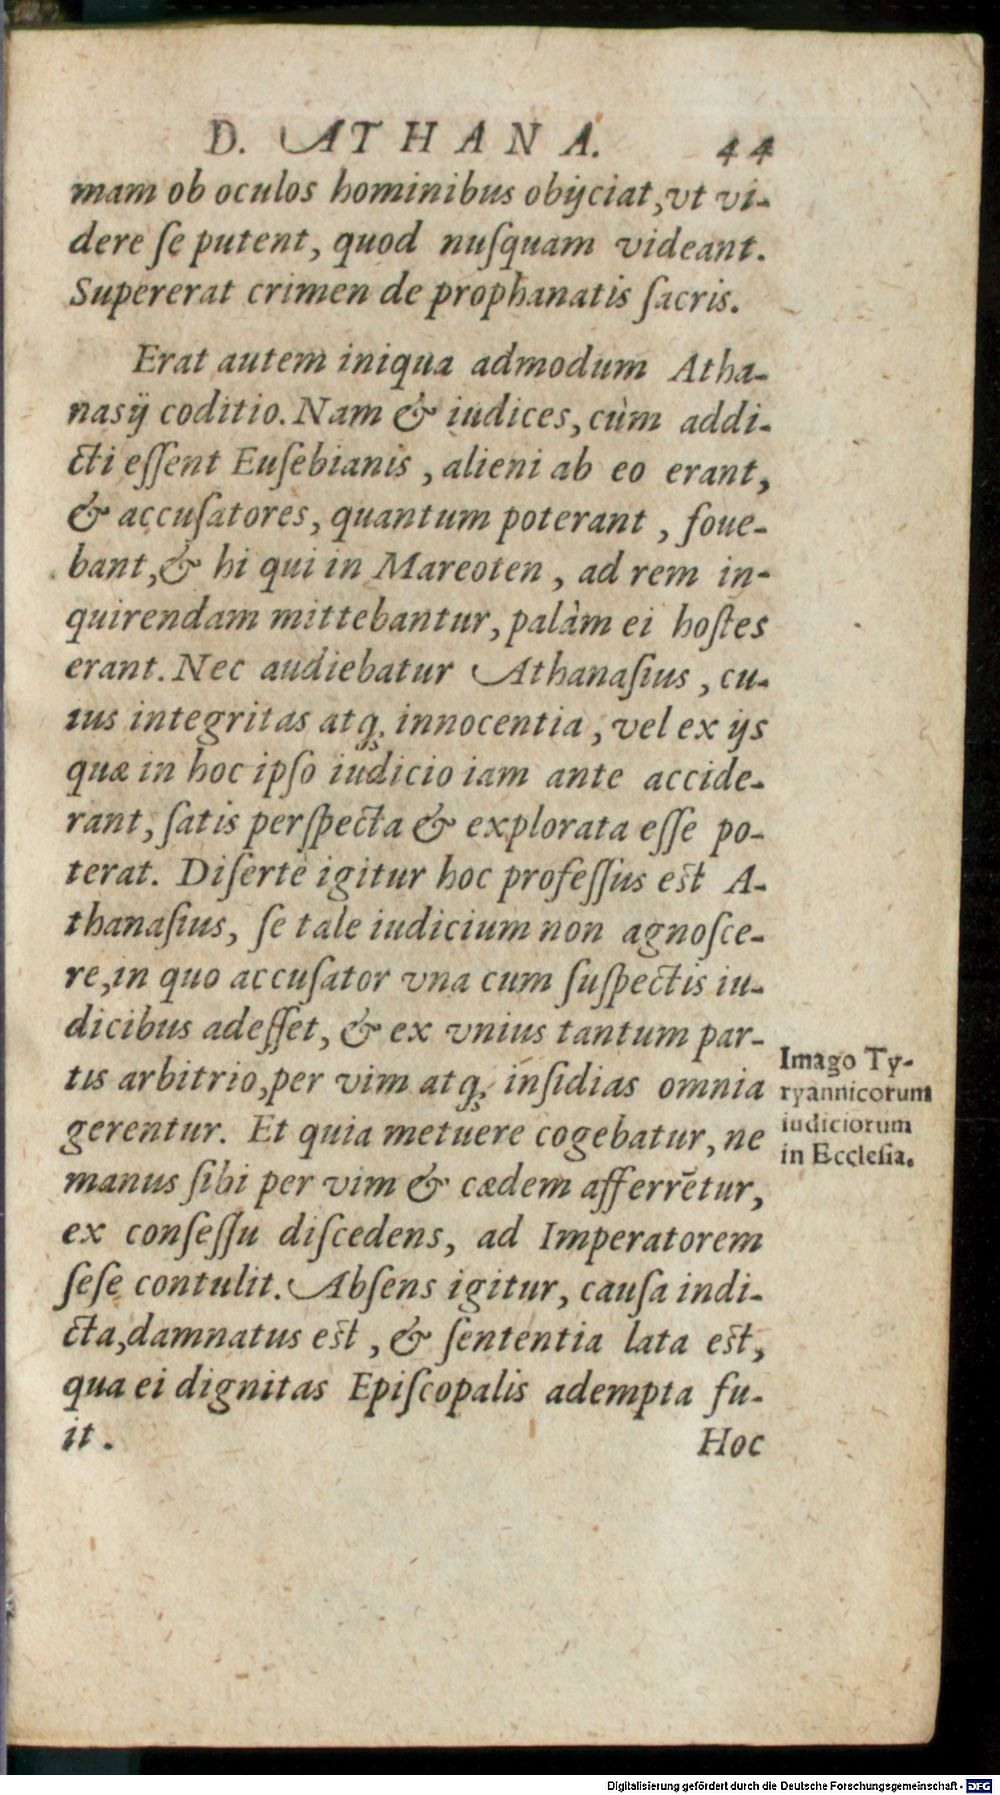 D. ATHANA. 44
mam ob oculos hominibus obijciat, vt vi-
dere ſe putent, quod nuſquam videant.
Supererat crimen de prophanatis ſacris.
Erat autem iniqua admodum Atha-
nasij coditio. Nam & iudices, cùm addi-
cti eſſent Euſebianis, alieni ab eo erant,
& accuſatores, quantum poterant, foue-
bant, & hi qui in Mareoten, ad rem in-
quirendam mittebantur, palàm ei hoſtes
erant. Nec audiebatur Athanaſius, cu-
ius integritas atq; innocentia, vel ex ijs
quæ in hoc ipſo iudicio iam ante accide-
rant, ſatis perſpecta & explorata eſſe po-
terat. Diſertè igitur hoc profeſſus eſt A-
thanaſius, ſe tale iudicium non agnoſce-
re, in quo accuſator vna cum ſuſpectis iu-
dicibus adeſſet, & ex vnius tantum par-
tis arbitrio, per vim atq; inſidias omnia
gerentur. Et quia metuere cogebatur, ne
manus ſibi per vim & cædem afferrētur,
ex conſeſſu diſcedens, ad Imperatorem
ſeſe contulit. Abſens igitur, cauſa indi-
cta, damnatus eſt, & ſententia lata eſt,
qua ei dignitas Epiſcopalis adempta fu-
it. Hoc
Imago Ty-
ryannicorum
iudiciorum
in Eccleſia.
Digitalisierung gefördert durch die Deutsche Forschungsgemeinschaft - DFG